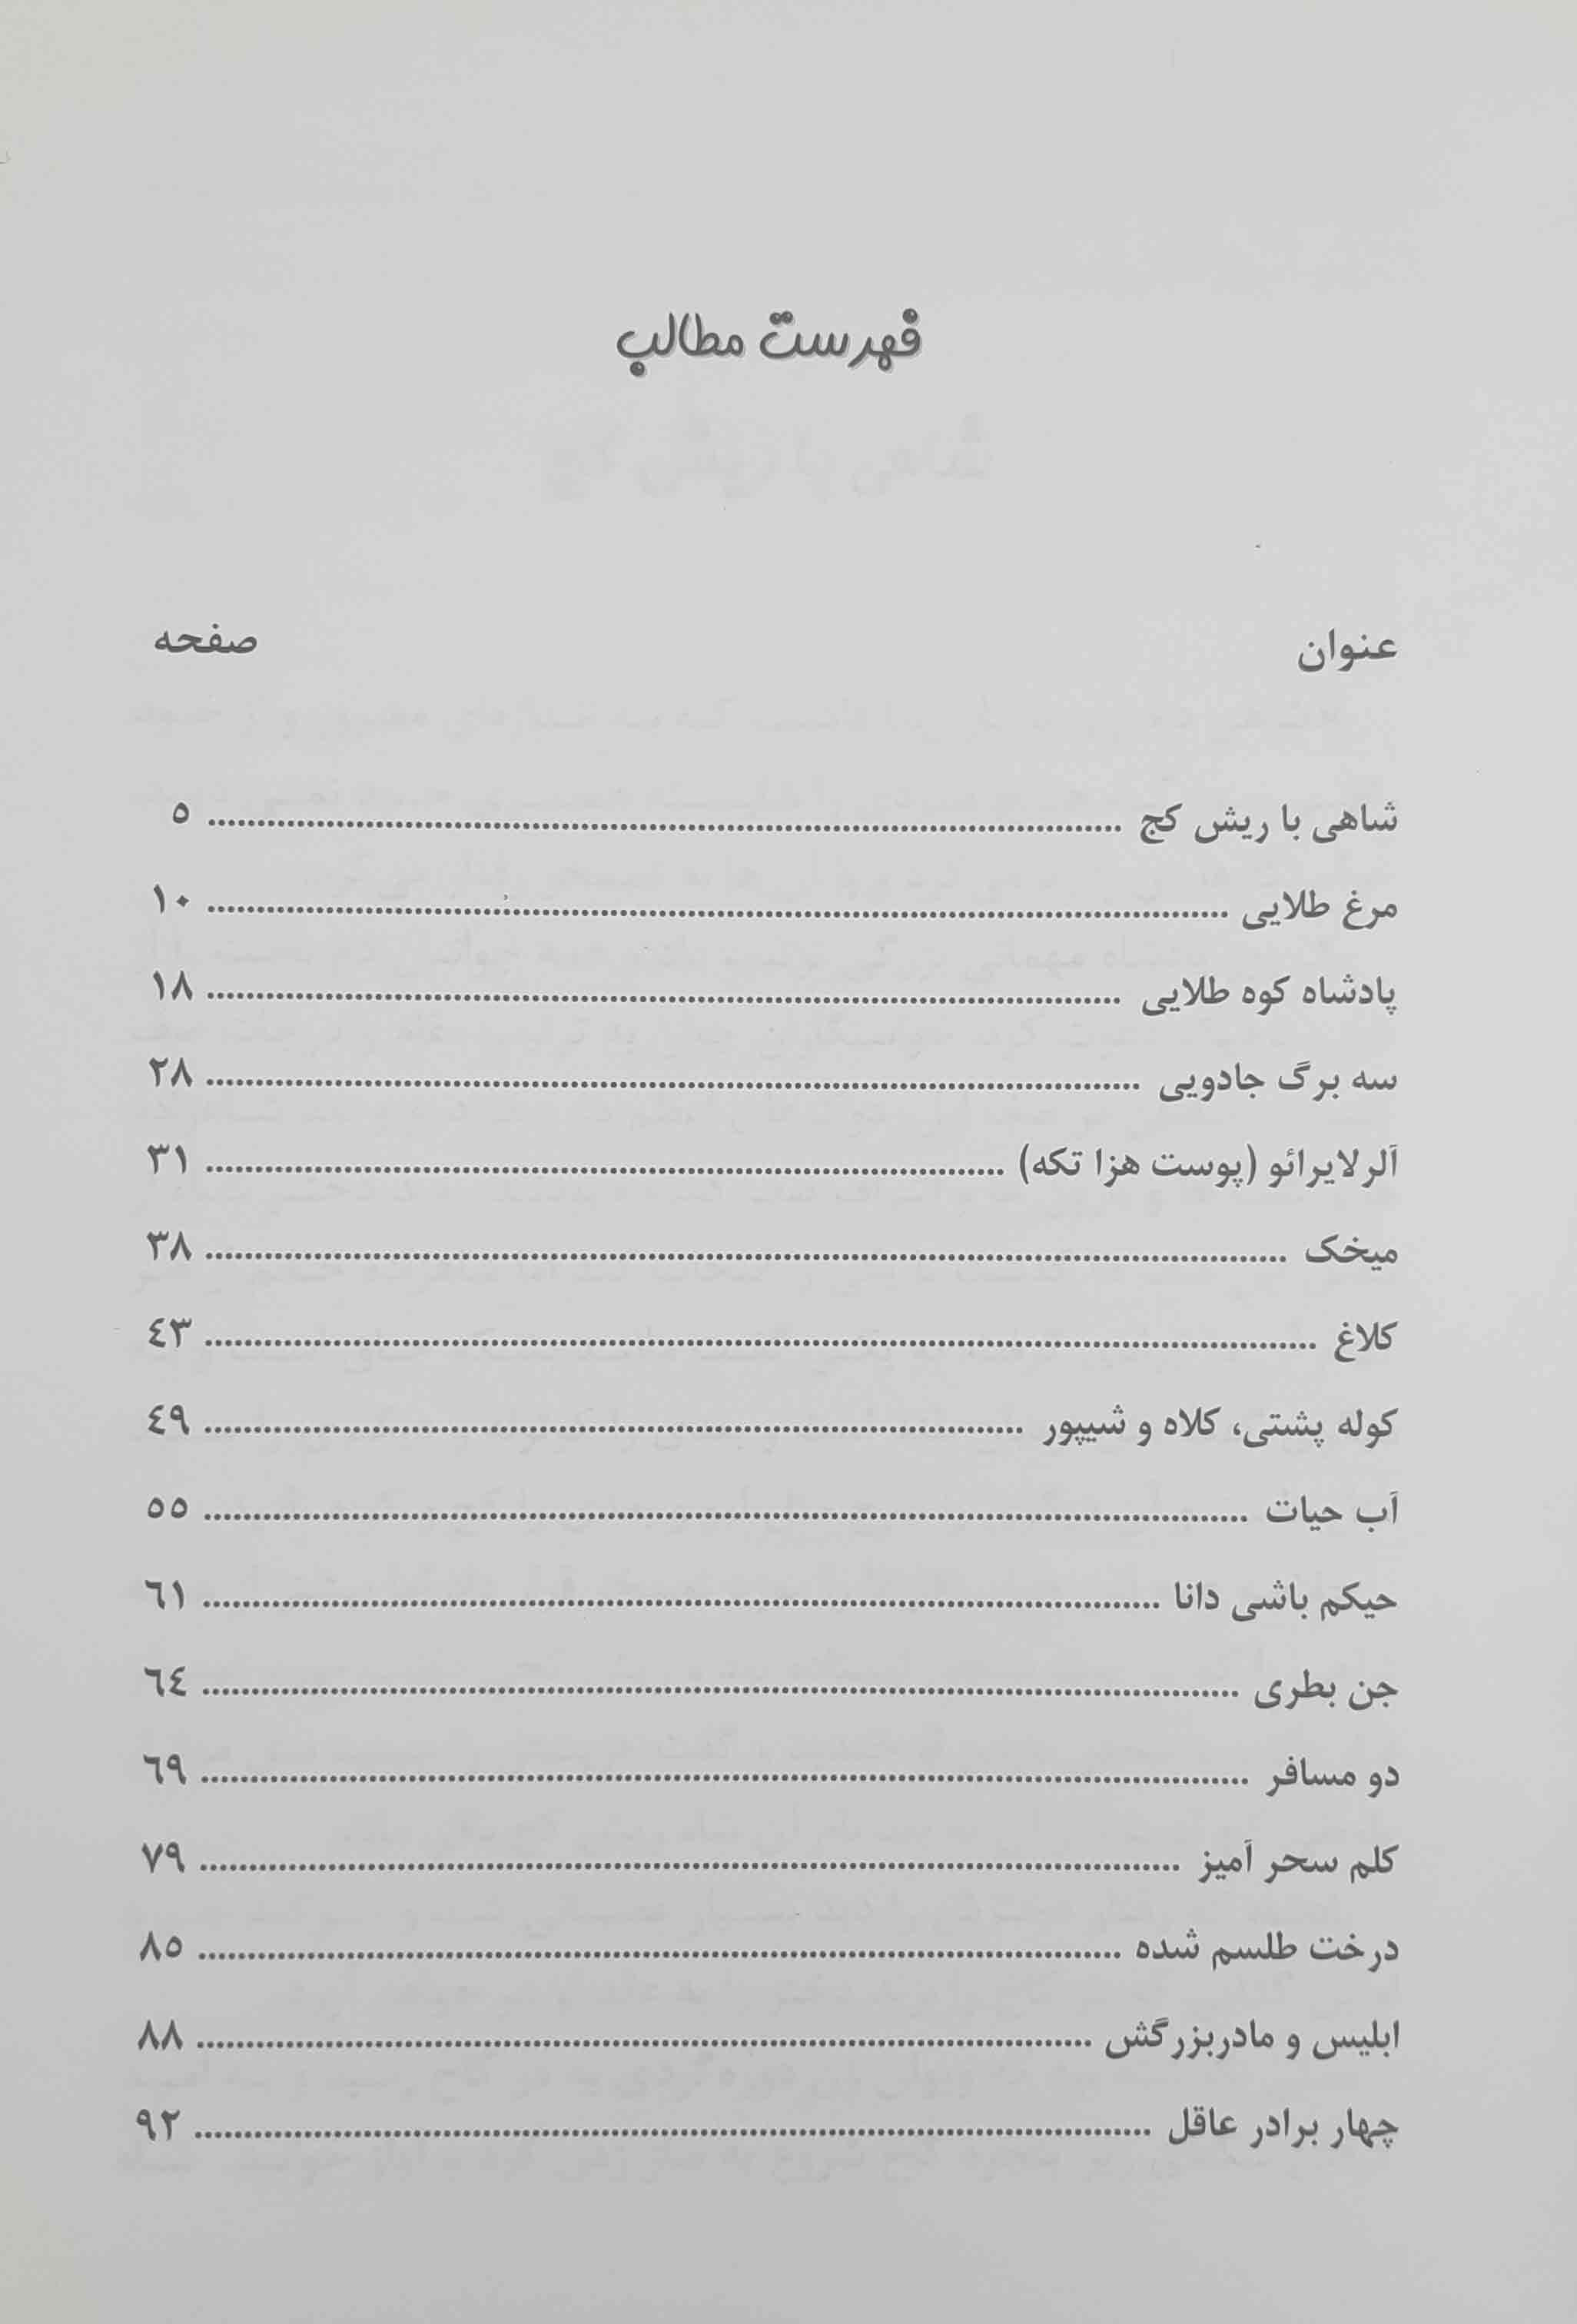 فهرست مطالب
عنوان صفحه
شاهی با ریش کج ........ ٥
مرغ طلایی ........ ١٠
پادشاه کوه طلایی ........ ١٨
سه برگ جادویی ........ ٢٨
آلرلایرائو (پوست هزا تکه) ........ ٣١
میخک ........ ٣٨
کلاغ ........ ٤٣
کوله پشتی، کلاه و شیپور ........ ٤٩
آب حیات ........ ٥٥
حیکم باشی دانا ........ ٦١
جن بطری ........ ٦٤
دو مسافر ........ ٦٩
کلم سحر آمیز ........ ٧٩
درخت طلسم شده ........ ٨٥
ابلیس و مادربزرگش ........ ٨٨
چهار برادر عاقل ........ ٩٢